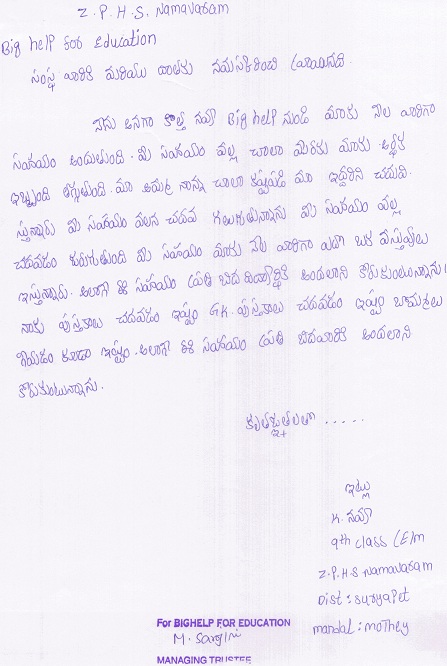 Z.P.H.S. Namavaram
Big help for Education
సంస్థ వారికి మరియు దాతకు నమస్కరించి వ్రాయునది.
నేను అనగా కొత్త నవ్య Big help నుండి మాకు నెల వారిగా
సహయం అందుతుంది. మీ సహయం వల్ల చాలా వరకు మాకు ఆర్థిక
ఇబ్బంది తగ్గుతుంది. మా అమ్మ నాన్న చాలా కష్టపడి మా ఇద్దరిని చదివి-
స్తున్నారు మీ సహయం వలన చదవ గలుగుతున్నాను మీ సహయం వల్ల
చదవడం జరుగుతుంది మీ సహయం మాకు నెల వారిగా ఏదో ఒక వస్తువులు
ఇస్తున్నారు. అలాగే ఈ సహయం ప్రతి బిద విద్యార్థికి అందలాని కోరుకుంటున్నాను.
నాకు పుస్తకాలు చదవడం ఇష్టం G.K. పుస్తకాలు చదవడం ఇష్టం బొమ్మలు
గీయడం కూడా ఇష్టం. అలాగే ఈ సహయం ప్రతి బిదవారికి అందలాని
కోరుకుంటున్నాను.
కృతజ్ఞతలతో .....
ఇట్లు
K. నవ్య
9th class (E/m
Z.P.H.S Namavaram
Dist : suryapet
mandal : mothey
For BIGHELP FOR EDUCATION
M. Sarojini
MANAGING TRUSTEE